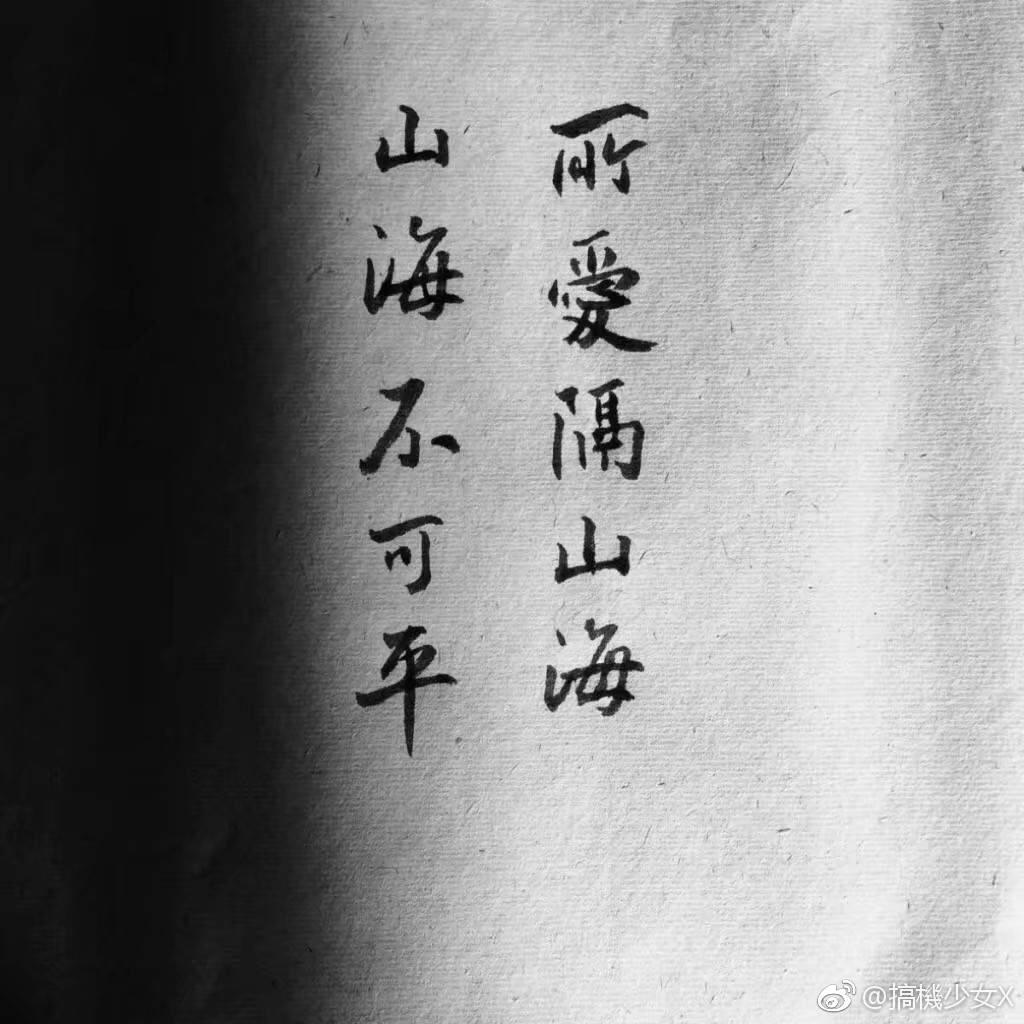 所愛隔山海
山海不可平
@搞機少女X